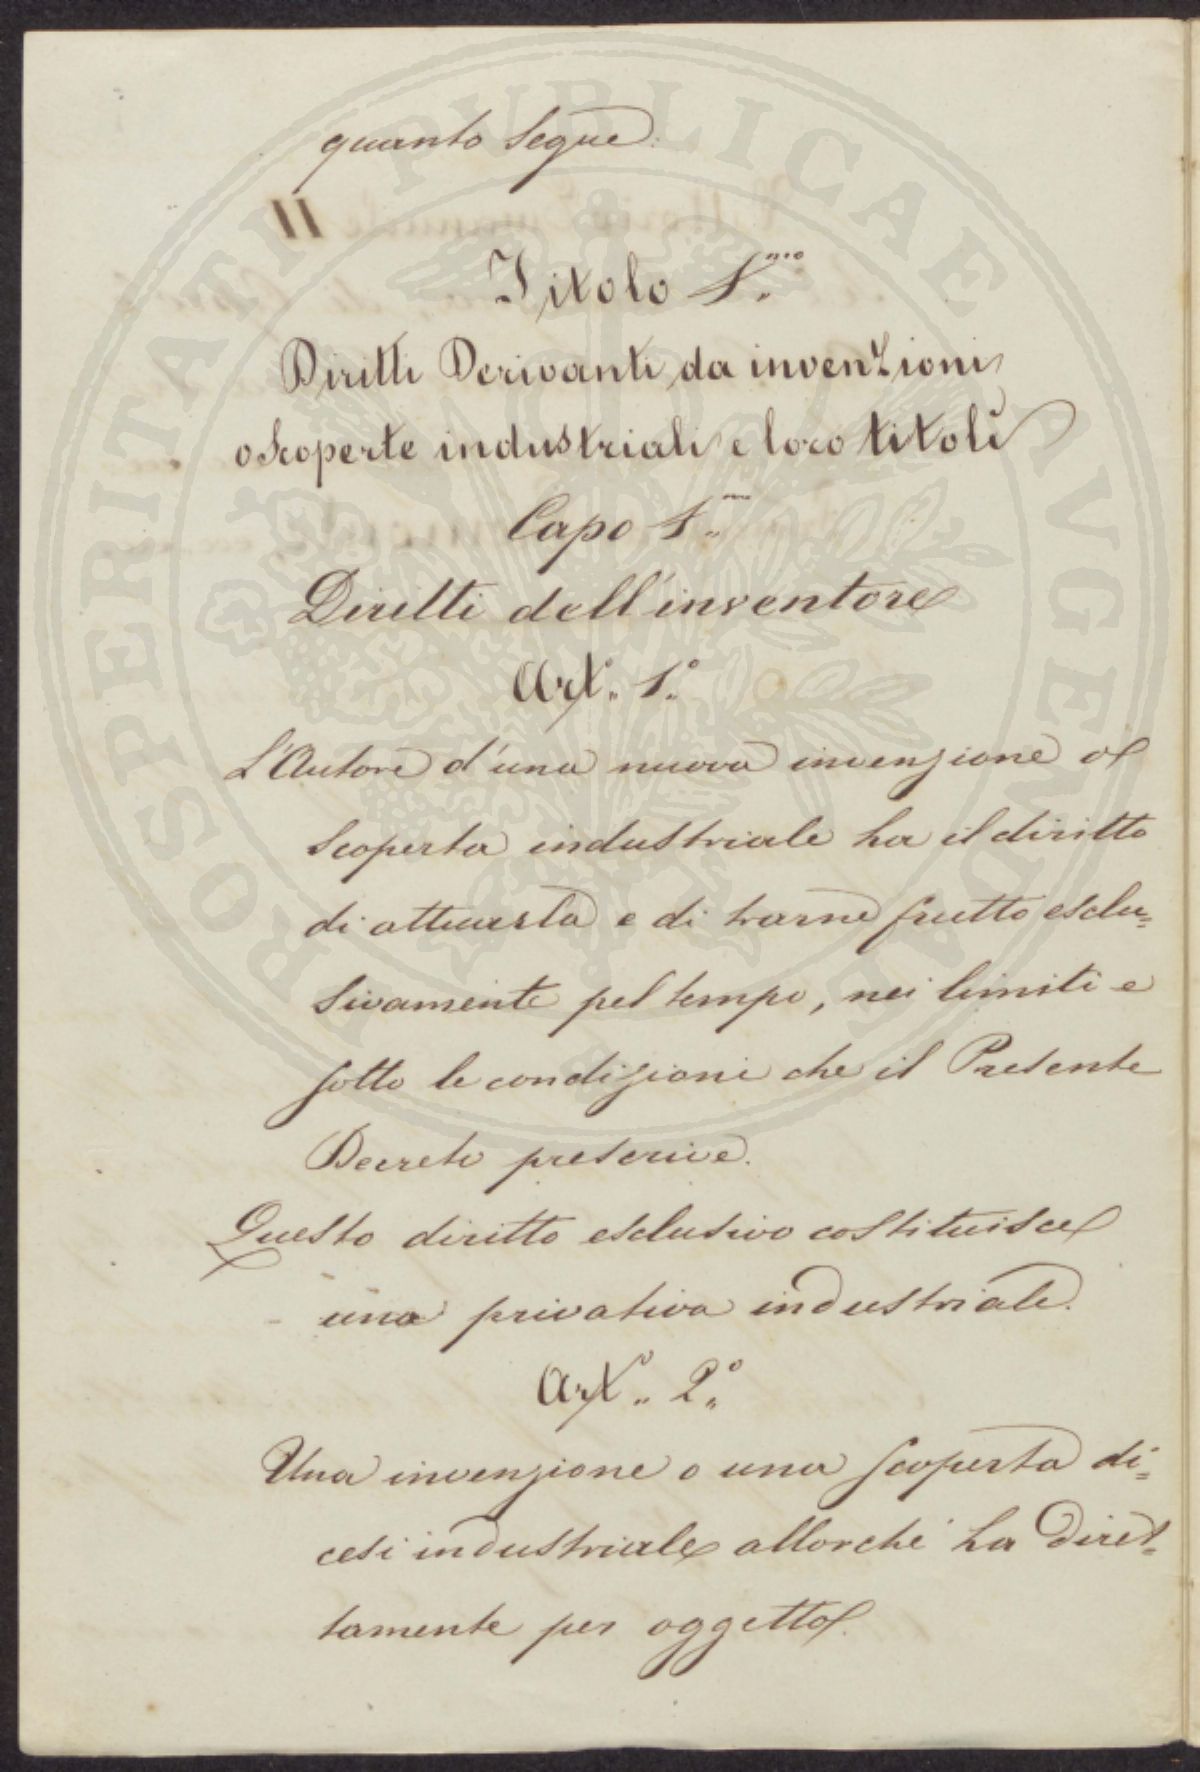 quanto segue.
Titolo 1.mo
Diritti Derivanti da invenzioni
o scoperte industriali e loro titoli
Capo 1.mo
Diritti dell'inventore
Art. 1.o
L'Autore d'una nuova invenzione o
scoperta industriale ha il diritto
di attuarla e di trarne frutto esclu=
sivamente pel tempo, nei limiti e
sotto le condizioni che il Presente
Decreto prescrive.
Questo diritto esclusivo costituisce
una privativa industriale.
Art. 2.o
Una invenzione o una scoperta di=
cesi industriale allorchè ha diret=
tamente per oggetto.
PROSPERITATI PUBLICAE AVGENDAE